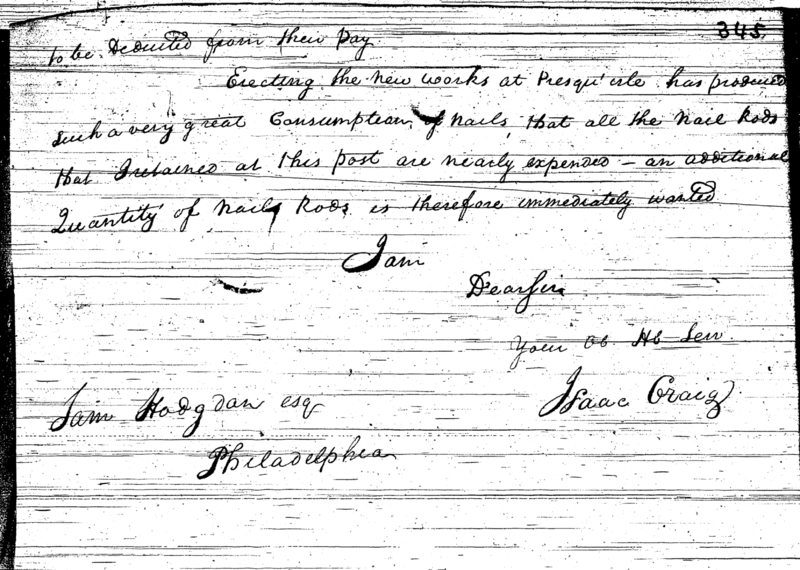 345
to be Deducted from their Pay
Erecting the new works at Presqu'isle has produced
such a very great Consumption of Nails, that all the Nail Rods
that I retained at this post are nearly expended – an additional
Quantity of Nail Rods is therefore immediately wanted
I am
Dear Sir
Your Ob Hb Serv
Isaac Craig
Sam Hodgdon esq
Philadelphia